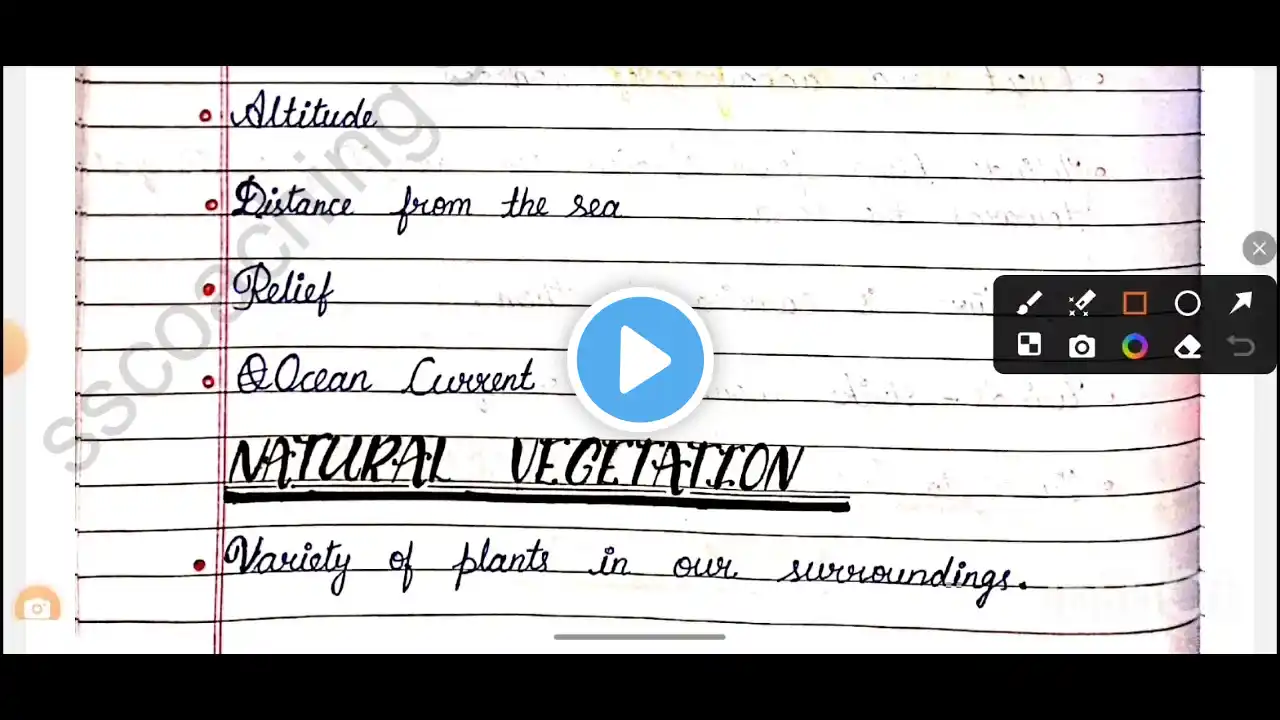 Altitude
Distance from the sea
Relief
Ocean Current
NATURAL VEGETATION
Variety of plants in our surroundings.
sscoaching